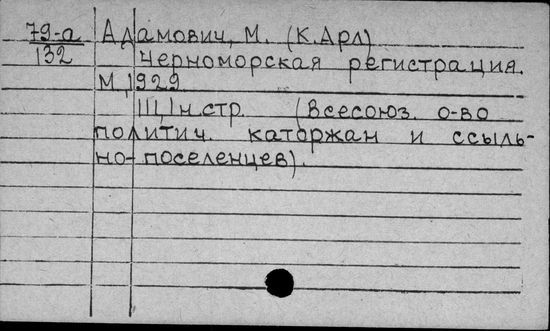 79-а Адамович, М. (К.Арл)
132 Черноморская регистрация.
М, 1929
III, 1 н.стр. (Всесоюз. о-во
политич. каторжан и ссыль-
но-поселенцев).